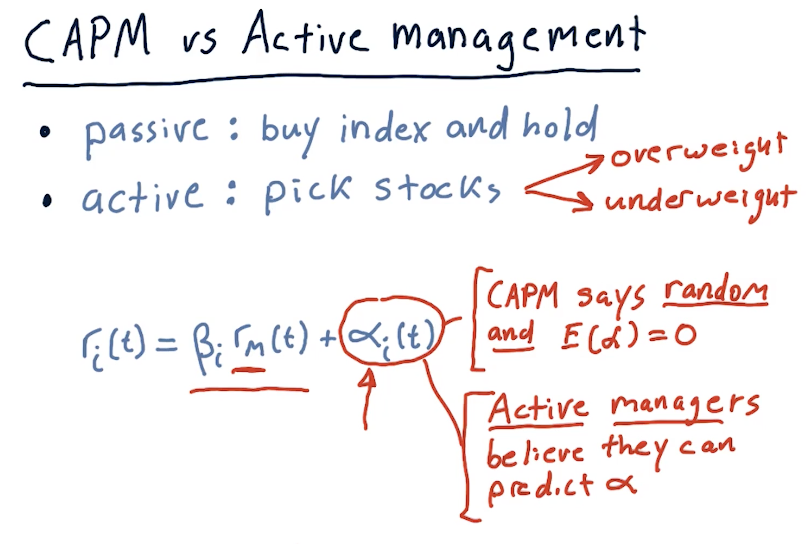 CAPM vs Active management
• passive : buy index and hold
• active : pick stocks
overweight
underweight
rᵢ(t) = βᵢ r_M(t) + αᵢ(t)
CAPM says random
and E(α) = 0
Active managers
believe they can
predict α